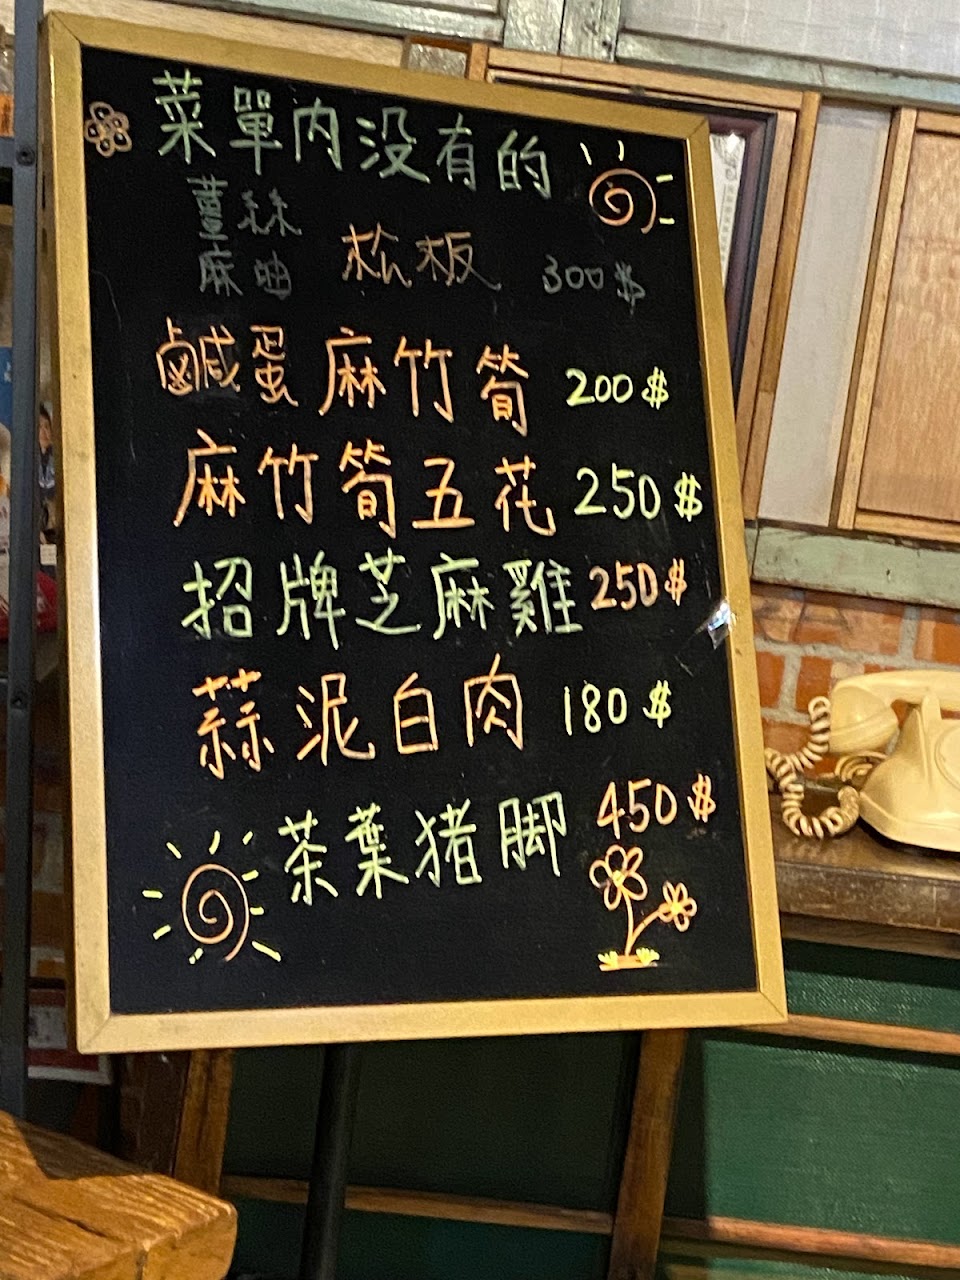 菜單內没有的
薑絲
麻油 松板 300$
鹹蛋麻竹筍 200$
麻竹筍五花 250$
招牌芝麻雞 250$
蒜泥白肉 180$
茶葉猪脚 450$